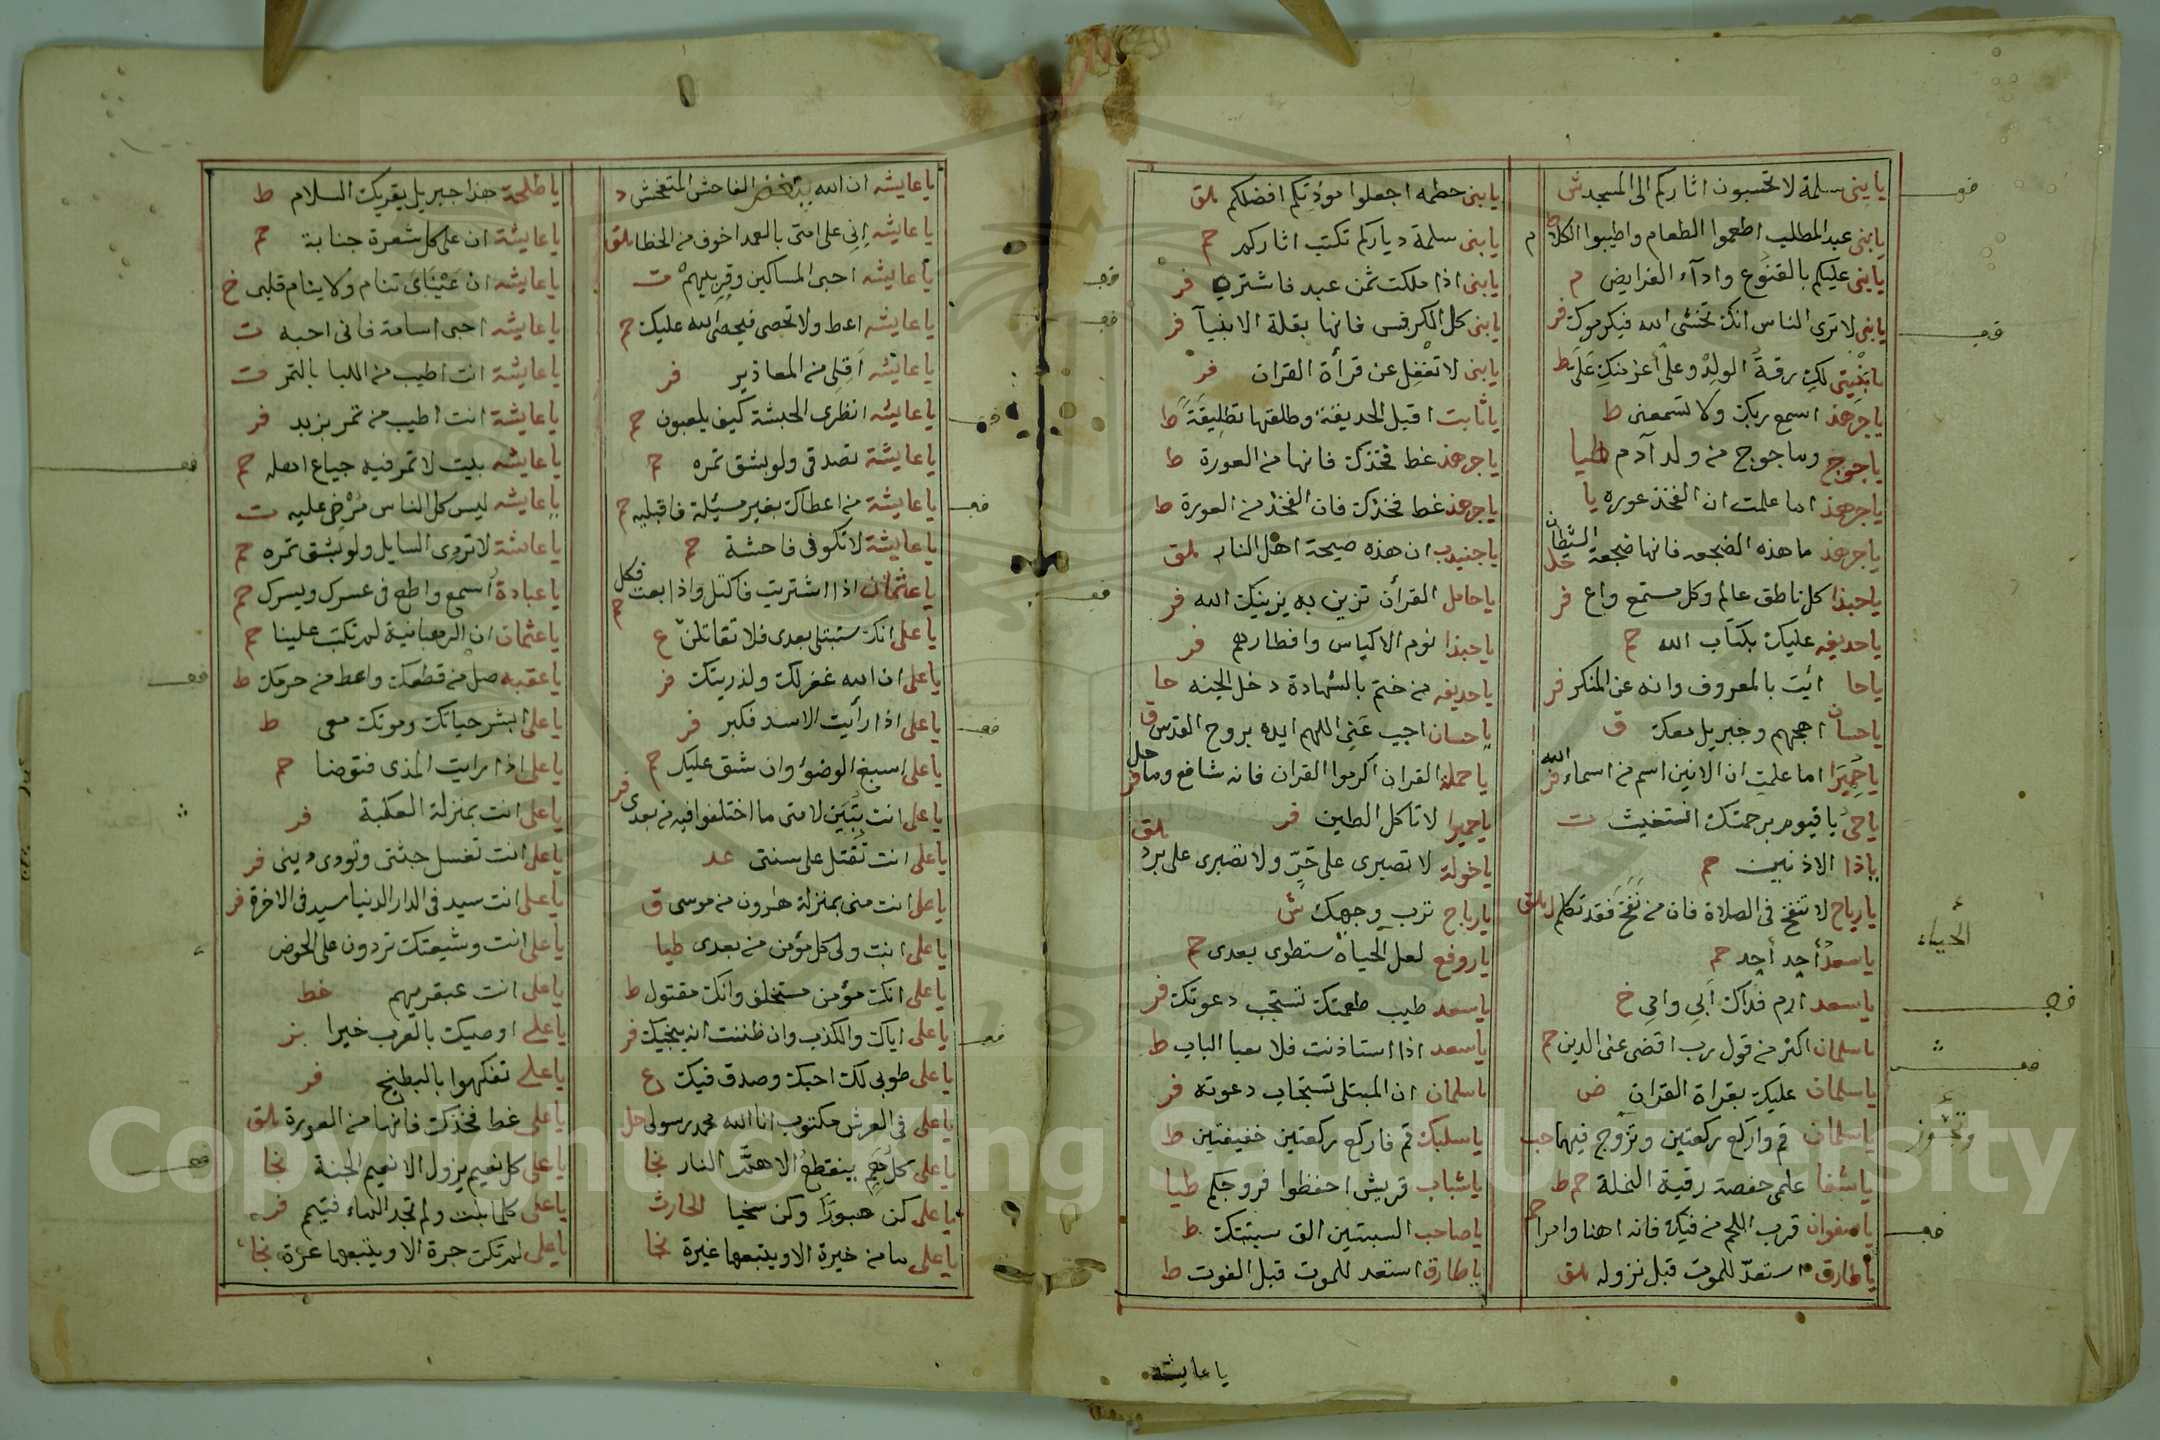 يا بنى سلمة لا تحسبون اثاركم الى المسجد ش
يا بنى عبد المطلب اطعموا الطعام واطيبوا الكلام
يا بنى عليكم بالقنوع واداء الفرايض م
يا بنى لا ترى الناس انك تخشى الله فيكرموك فر
يا بنيتى لك رقة الولد وعلى اعز منك على ط
يا جرهد اسمع ربك ولا تسمعنى ط
يا جوج وما جوج من ولد آدم طيا
يا جرهد اما علمت ان الفخذ عوره يا
يا جرهد ما هذه الضجعه فانها ضجعة الشيطان حل
يا حبذا كل ناطق عالم وكل مستمع واع فر
يا حديفه عليك بكتاب الله حم
يا حا ائت بالمعروف وانه عن المنكر فر
يا حسان اهجهم وجبريل معك ق
يا حميرا اما علمت ان الانين اسم من اسماء الله فر
يا حى يا قيوم برحمتك استغيث ت
يا ذا الاذنين حم
يا رياح لا تنفخ فى الصلاة فان من نفخ فقد تكلم
يا سعد أحد أحد حم
الحياه
يا سعد ارم فداك ابى وامى خ
يا سلمان اكثر من قول رب اقضى عنى الدين حم
يا سلمان عليك بقراة القران ض
يا سلمان قم واركع ركعتين وتزوج فيهما حب
وتجوز
يا شفا علمى حفصة رقية النملة حم ط
يا صفوان قرب اللحم من فيك فانه اهنا وامرا حم
يا طارق استعد للموت قبل نزوله
يا بنى حطمه اجعلوا موذنكم افضلكم
يا بنى سلمة دياركم تكتب اثاركم حم
يا بنى اذا ملكت ثمن عبد فاشتريه فر
يا بنى كل الكرفس فانها بقلة الانبيآ فر
يا بنى لا تغفل عن قرأة القران فر
يا ثابت اقبل الحديقة وطلقها تطليقة ط
يا جرهد غط فخذك فانها من العورة ط
يا جرهد غط فخذك فان الفخذ من العورة ط
يا جنيدب ان هذه صيحة اهل النار
يا حامل القرأن تزين به يزينك الله فر
يا حبذا نوم الاكياس وافطارهم فر
يا حديفه من ختم بالشهادة دخل الجنه حا
يا حسان اجب عنى اللهم ايده بروح القدس ق
يا حملة القران اكرموا القران فانه شافع وماحل فر
يا حميرا لا تاكل الطين فر
يا خولة لا تصبرى على حر ولا تصبرى على برد
يا رباح ترب وجهك ش
يا رويفع لعل الحياة ستطول بعدى حم
يا سعد طيب طعمتك تستجب دعوتك فر
يا سعد اذا استاذنت فلا الباب ط
يا سلمان ان المبتلى تستجاب دعوته فر
يا سليك قم فاركع ركعتين خفيفتين ط
يا شباب قريش احفظوا فروجكم طيا
يا صاحب السبتين الق سبتتك ط
يا طارق استعد للموت قبل الفوت ط
يا عايشه
يا عايشه ان الله يبغض الفاحش المتفحش د
يا عايشه انى على امتى بالعمد اخوف من الخطا
يا عايشه احبى المساكين وقربيهم ت
يا عايشه اعط ولا تحصى فيحصى الله عليك حم
يا عايشه اقلى من المعاذير فر
يا عايشه انظرى الحبشة كيف يلعبون حم
يا عايشة تصدقى ولو بشق تمره حم
يا عايشة من اعطاك بغير مسئلة فاقبليه حم
يا عايشة لا تكونى فاحشة حم
يا عثمان اذا اشتريت فاكتل واذا بعت فكل حم
يا على انك ستبتلى بعدى فلا تقاتلن ع
يا على ان الله غفر لك ولذريتك فر
يا على اذا رأيت الاسد فكبر فر
يا على اسبغ الوضؤ وان شق عليك حم
يا على انت تبين لامتى ما اختلفوا فيه من بعدى فر
يا على انت تقتل على سنتى عد
يا على انت منى بمنزلة هرون من موسى ق
يا على انت ولى كل مؤمن من بعدى طيا
يا على انك مؤمن مستخلف وانك مقتول ط
يا على اياك والكذب وان ظننت انه ينجيك فر
يا على طوبى لك احبك وصدق فيك ع
يا على فى العرش مكتوب انا الله محمد رسولى حل
يا على كل هم ينقطع الا هم النار نجا
يا على كن صبورا وكن سخيا الحارث
يا على ما من خيرة الا ويتبعها غيرة نجا
يا طلحة هذا جبريل يقريك السلام ط
يا عايشة ان على كل شعرة جنابة حم
يا عايشه ان عيناى تنام ولا ينام قلبى خ
يا عايشه احبى اسامة فانى احبه ت
يا عايشة انت اطيب من اللبا بالتمر ت
يا عايشة انت اطيب من تمر بزبد فر
يا عايشه بيت لا تمر فيه جياع اهله حم
يا عايشه ليس كل الناس مرخى عليه ت
يا عايشة لا تردى السايل ولو بشق تمره حم
يا عبادة اسمع واطع فى عسرك ويسرك حم
يا عثمان ان الرهبانية لم تكتب علينا حم
يا عقبه صل من قطعك واعط من حرمك ط
يا على ابشر حياتك وموتك معى ط
يا على اذا رايت المذى فتوضا حم
يا على انت بمنزلة الكعبة فر
يا على انت تغسل جثتى وتودى دينى فر
يا على انت سيد فى الدار الدنيا سيد فى الاخرة فر
يا على انت وشيعتك تردون على الحوض
يا على انت عبقريهم خط
يا على اوصيك بالعرب خيرا بز
يا على تفكهوا بالبطيخ فر
يا على غط فخذك فانها من العورة
يا على كل نعيم يزول الا نعيم الجنة نجا
يا على كلما بلت ولم تجد الماء فتيمم فر
يا على لم تك حبرة الا ويتبعها عبرة نجا
Copyright © King Saud University